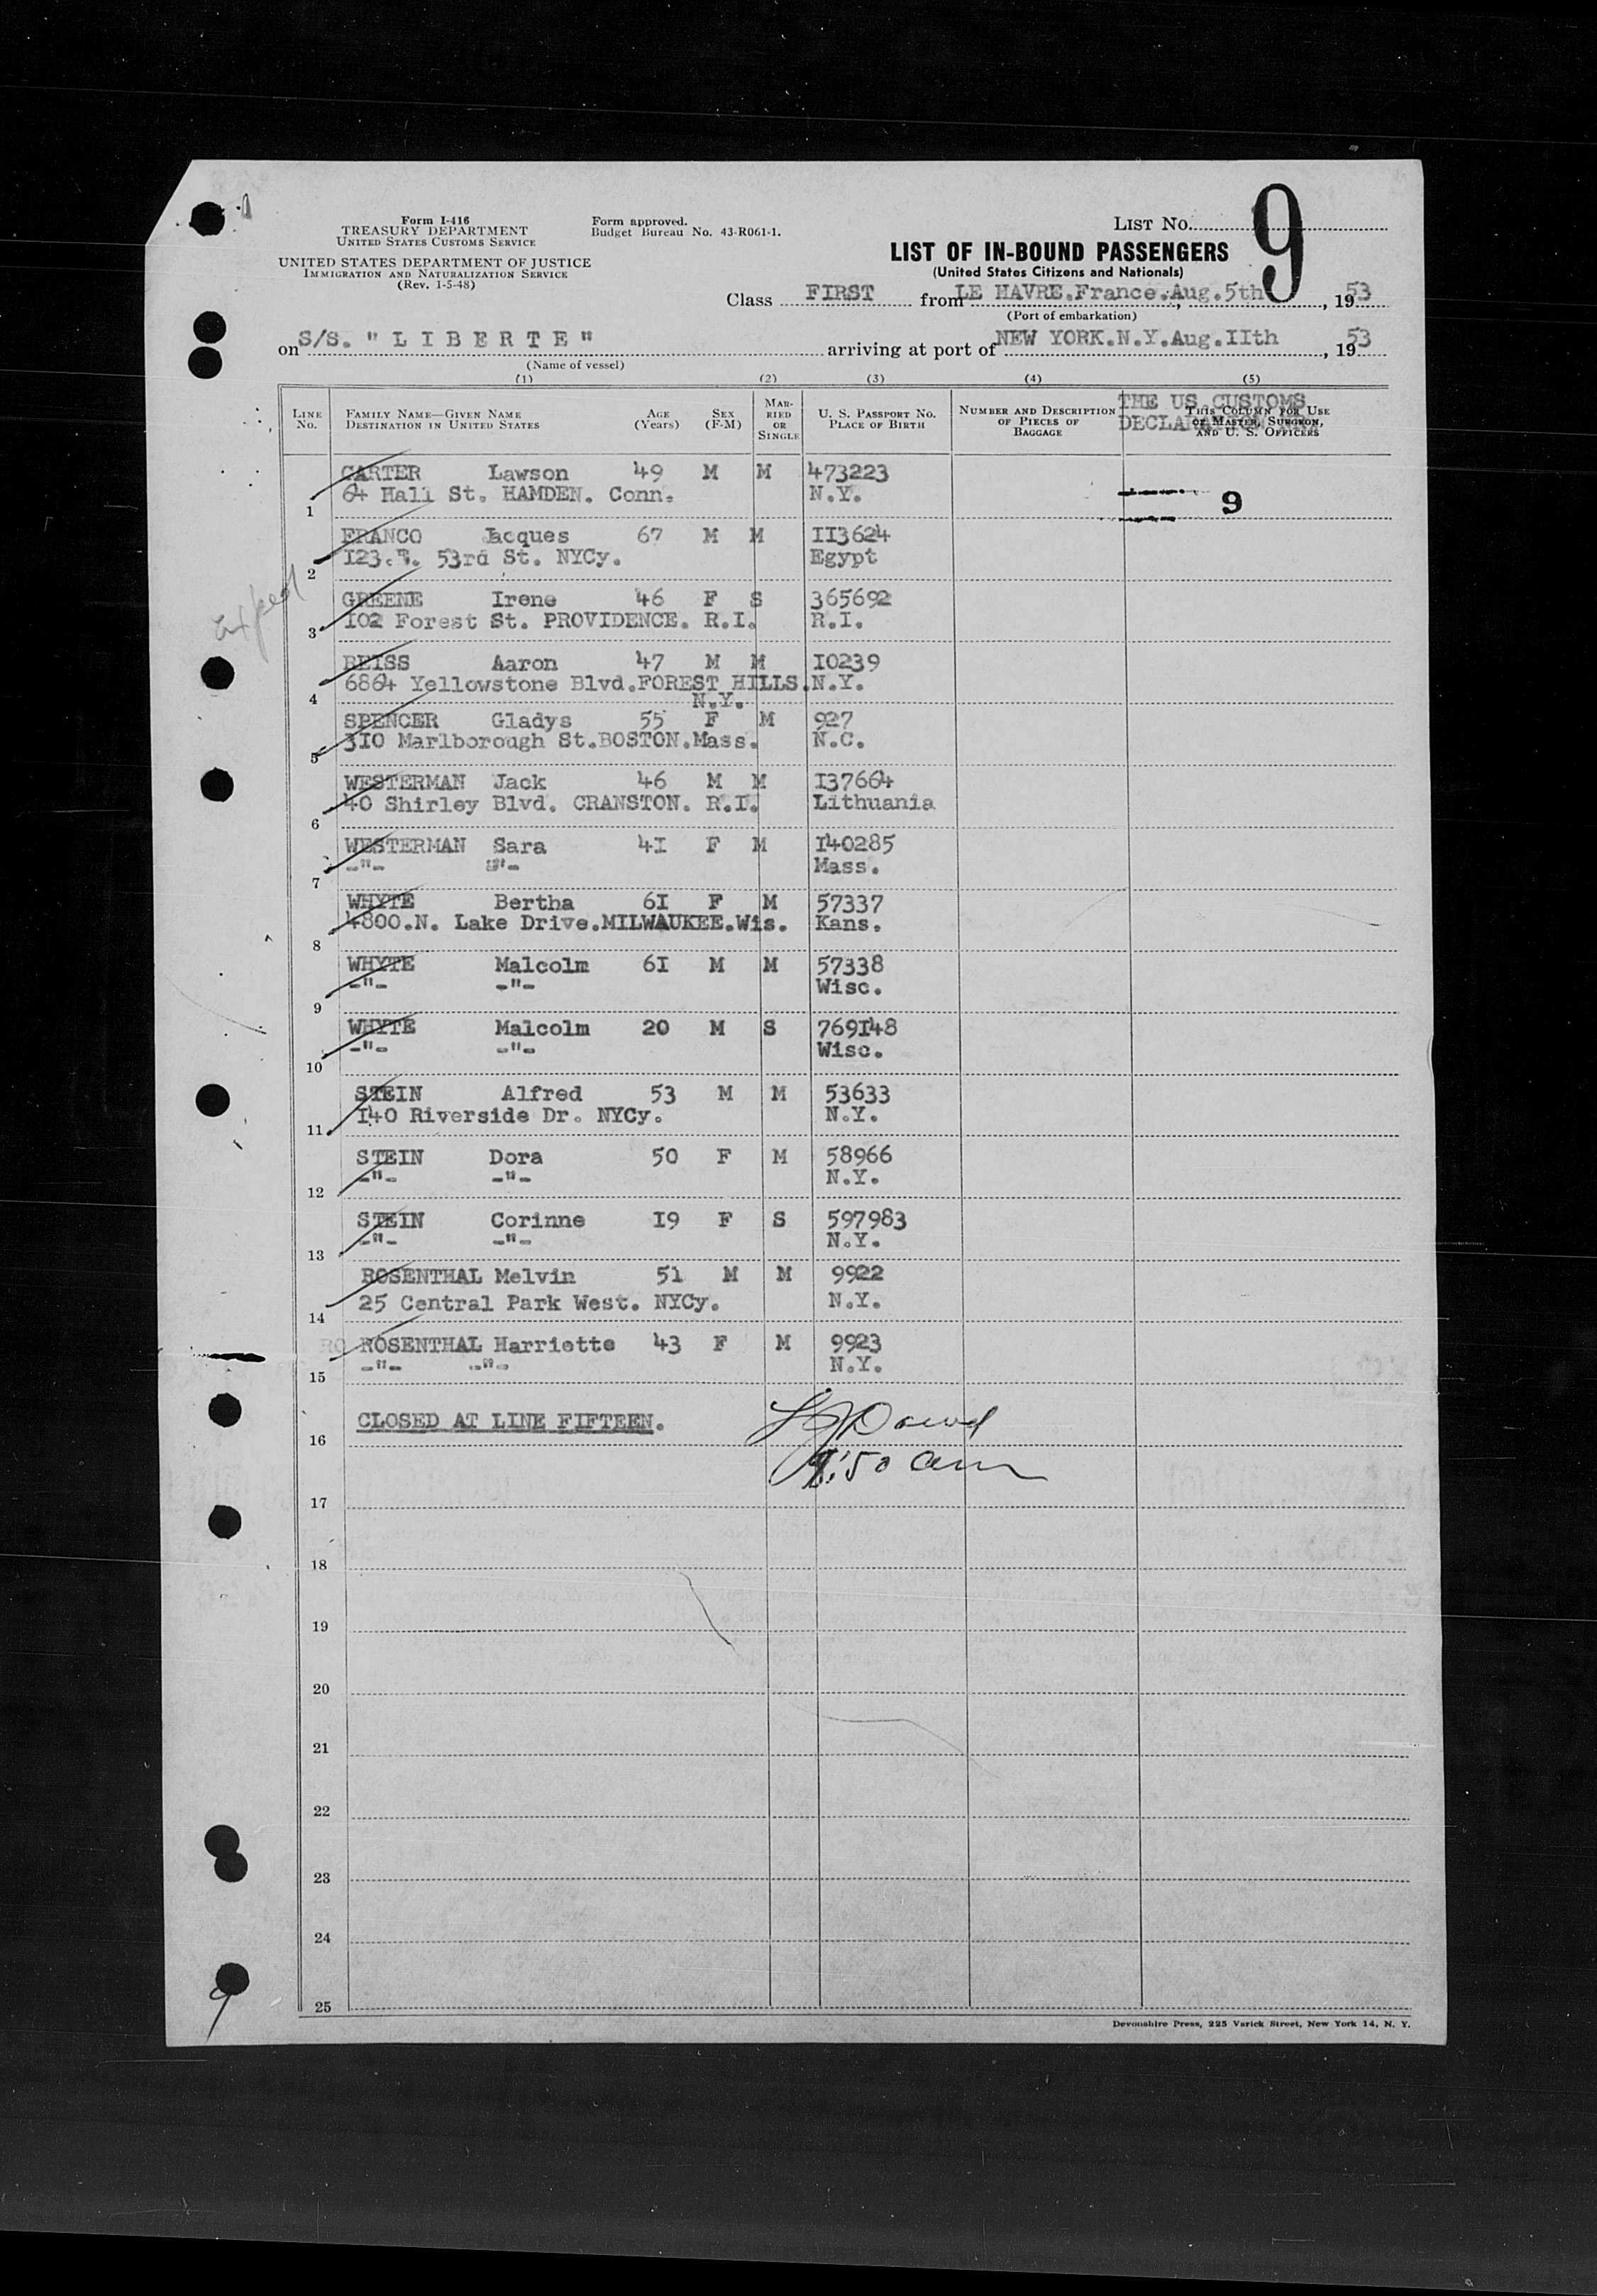 Form I-416
TREASURY DEPARTMENT
UNITED STATES CUSTOMS SERVICE
UNITED STATES DEPARTMENT OF JUSTICE
IMMIGRATION AND NATURALIZATION SERVICE
(Rev. 1-5-48)
Form approved.
Budget Bureau No. 43-R061-1.
LIST No. 9
LIST OF IN-BOUND PASSENGERS
(United States Citizens and Nationals)
Class FIRST from LE HAVRE.France.Aug.5th, 1953
(Port of embarkation)
on S/S. "L I B E R T E" arriving at port of NEW YORK.N.Y.Aug.IIth, 1953
(Name of vessel)
(1) (2) (3) (4) (5)
LINE No. FAMILY NAME—GIVEN NAME DESTINATION IN UNITED STATES AGE (Years) SEX (F-M) MARRIED OR SINGLE U. S. PASSPORT No. PLACE OF BIRTH NUMBER AND DESCRIPTION OF PIECES OF BAGGAGE THIS COLUMN FOR USE OF MASTER, SURGEON, AND U. S. OFFICERS
THE US CUSTOMS
CARTER Lawson 49 M M 473223
1 64 Hall St. HAMDEN. Conn. N.Y. 9
FRANCO Jacques 67 M M II3624
2 I23. 53rd St. NYCy. Egypt
GREENE Irene 46 F S 365692
3 I02 Forest St. PROVIDENCE. R.I. R.I.
REISS Aaron 47 M M I0239
4 6864 Yellowstone Blvd.FOREST HILLS. N.Y.
N.Y.
SPENCER Gladys 55 F M 927
5 3I0 Marlborough St.BOSTON.Mass. N.C.
WESTERMAN Jack 46 M M I37664
6 40 Shirley Blvd. CRANSTON. R.I. Lithuania
WESTERMAN Sara 4I F M I40285
7 -"- -"- Mass.
WHYTE Bertha 6I F M 57337
8 4800.N. Lake Drive.MILWAUKEE.Wis. Kans.
WHYTE Malcolm 6I M M 57338
9 -"- -"- Wisc.
WHYTE Malcolm 20 M S 769I48
10 -"- -"- Wisc.
STEIN Alfred 53 M M 53633
11 I40 Riverside Dr. NYCy. N.Y.
STEIN Dora 50 F M 58966
12 -"- -"- N.Y.
STEIN Corinne I9 F S 597983
13 -"- -"- N.Y.
ROSENTHAL Melvin 51 M M 9922
14 25 Central Park West. NYCy. N.Y.
ROSENTHAL Harriette 43 F M 9923
15 -"- -"- N.Y.
CLOSED AT LINE FIFTEEN.
16
17
18
19
20
21
22
23
24
25
9
Devonshire Press, 225 Varick Street, New York 14, N. Y.